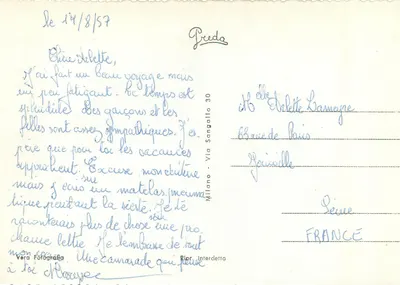 le 14/8/57
Chère Arlette.
J'ai fait un beau voyage mais
un peu fatigant. Le temps est
splendide des garçons et les
filles sont assez sympathiques. J'es
père que pour toi les vacances
approchent. Excuse mon écriture
mais j'écris sur un matelas pneuma
tique pendant la sieste. Je te
raconterais plus de chose une pro
chaine lettre. Je t'embrasse de tout
mon Une camarade qui pense
à toi
Preda
Milano - Via Sangallo 30
Vera Fotografia
Ripr. Interdetta
Melle Arlette
rue de Paris
Joinville
Seine
FRANCE